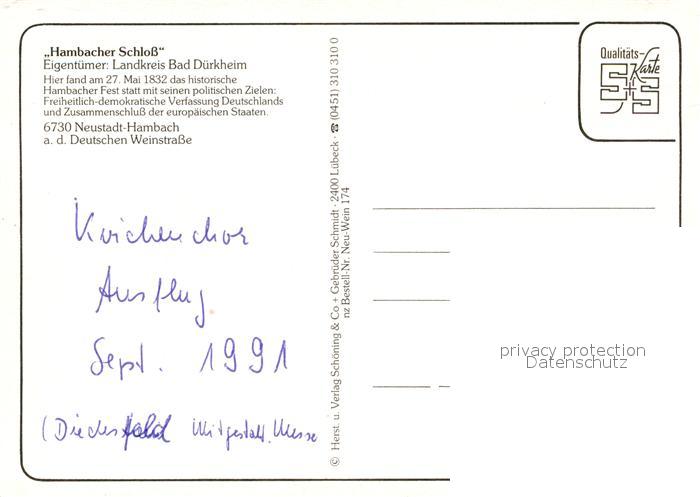 „Hambacher Schloß“
Eigentümer: Landkreis Bad Dürkheim
Hier fand am 27. Mai 1832 das historische
Hambacher Fest statt mit seinen politischen Zielen:
Freiheitlich-demokratische Verfassung Deutschlands
und Zusammenschluß der europäischen Staaten.
6730 Neustadt-Hambach
a. d. Deutschen Weinstraße
Kirchenchor
Ausflug
Sept. 1991
(Diedesfeld Mitgestalt. Messe
© Herst. u. Verlag Schöning & Co + Gebrüder Schmidt · 2400 Lübeck · ☎ (0451) 310 310 0
nz Bestell-Nr. Neu-Wein 174
Qualitäts-
Karte
S+S
privacy protection
Datenschutz